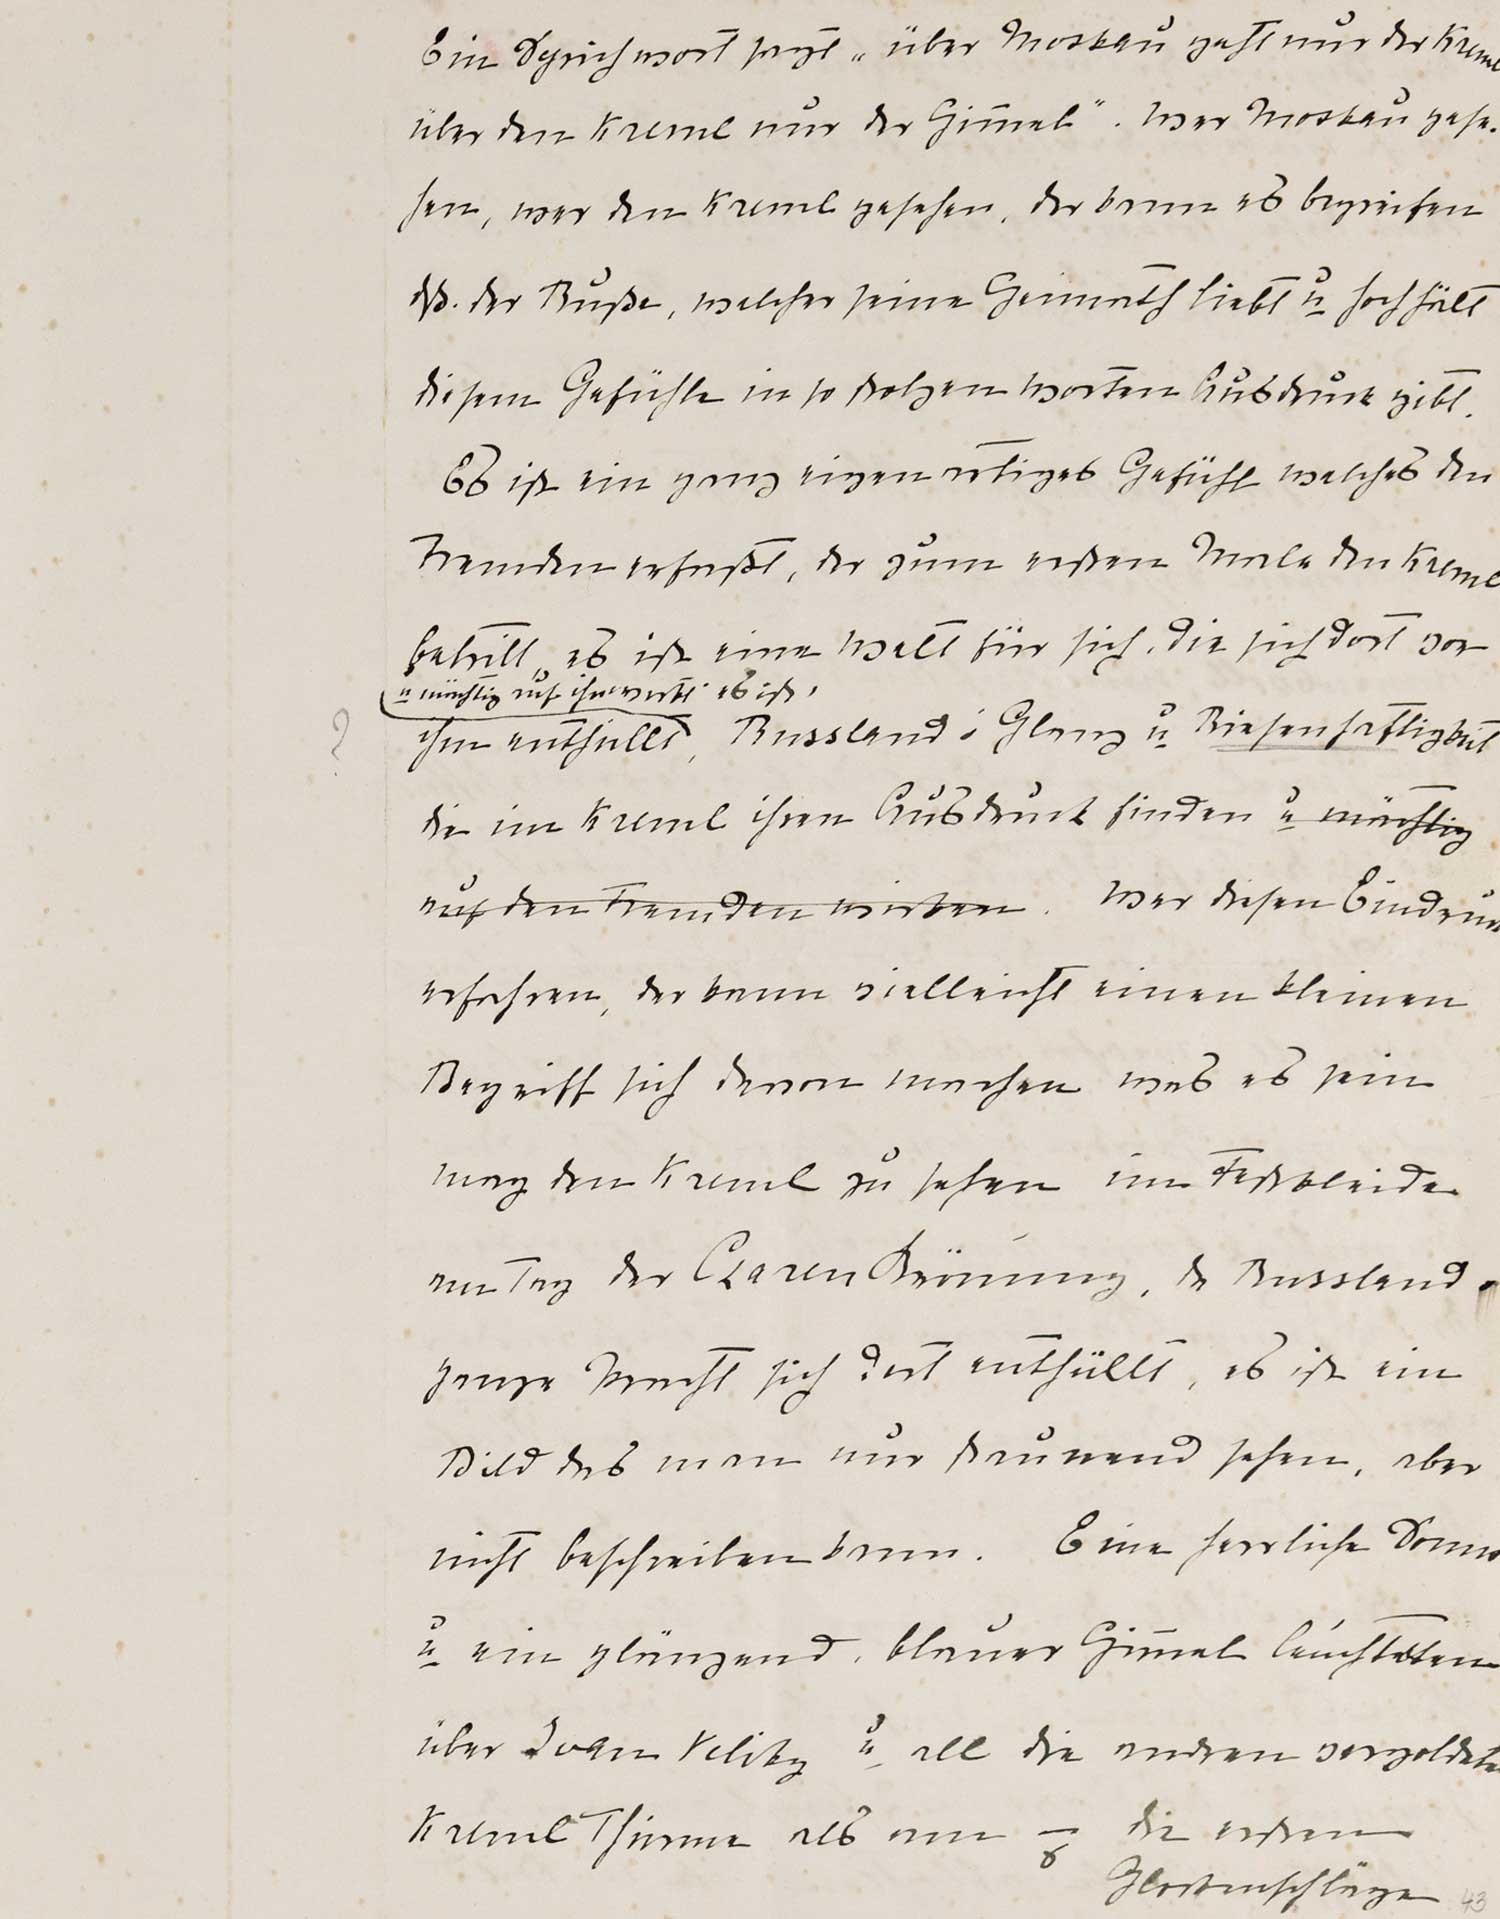 Ein Sprichwort sagt „über Moskau geht nur der Kreml
über den Kreml nur der Him̅el“. Wer Moskau gese-
hen, wer den Kreml gesehen, der kann es begreifen
dß. der Ruße, welcher seine Heimath liebt u hochhält
diesem Gefühle in so stolzen Worten Ausdruck gibt.
Es ist ein ganz eigenartiges Gefühl welches den
Fremden erfaßt, der zum ersten Male den Kreml
betritt, es ist eine Welt für sich, die sich dort vor
u mächtig auf ihn wirkt es ist,
ihm enthüllt, Russlands Glanz u Riesenhaftigkeit
die im Kreml ihren Ausdruck finden u mächtig
auf den Fremden wirken. Wer diesen Eindruck
erfahren, der kann vielleicht einen kleinen
Begriff sich davon machen was es sein
mag den Kreml zu sehen im Festkleide
am Tag der Czaren Krönung, da Russlands
ganze Macht sich dort enthüllt, es ist ein
Bild das man nur staunend sehen, aber
nicht beschreiben kann. Eine herrliche Sonne
u ein glänzend, blauer Him̅el leuchteten
über Ivan Veliky u all die andren vergoldeten
Kreml Thürme als am die ersten
Glockenschläge
43